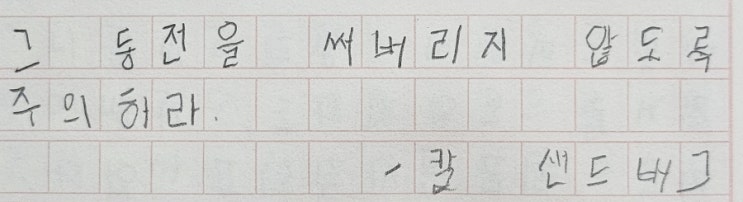 그 동전을 써버리지 않도록
주의하라.
- 칼 샌드버그